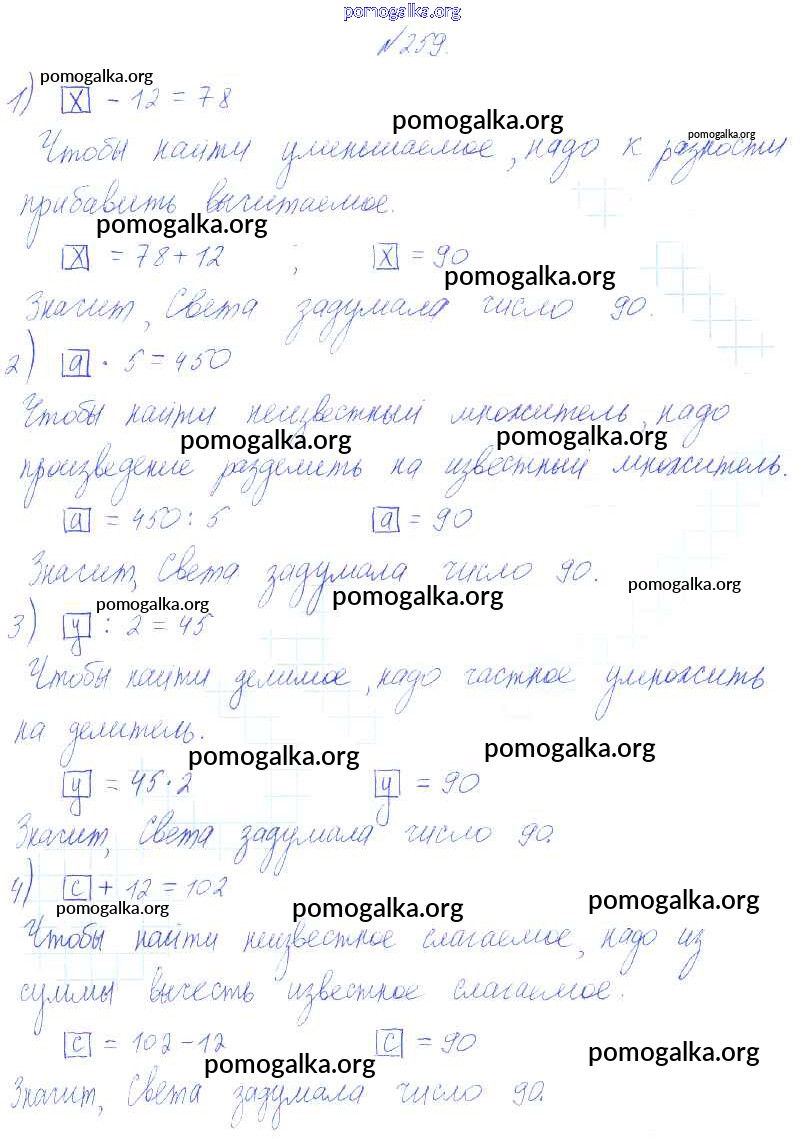 pomogalka.org
№259.
pomogalka.org
1) x - 12 = 78
pomogalka.org
pomogalka.org
Чтобы найти уменьшаемое, надо к разности
прибавить вычитаемое.
pomogalka.org
x = 78 + 12 ; x = 90
pomogalka.org
Значит, Света задумала число 90.
2) a · 5 = 450
Чтобы найти неизвестный множитель, надо
pomogalka.org pomogalka.org
произведение разделить на известный множитель.
a = 450 : 5 a = 90
Значит, Света задумала число 90.
pomogalka.org
pomogalka.org
pomogalka.org
3) y : 2 = 45
Чтобы найти делимое, надо частное умножить
на делитель.
pomogalka.org pomogalka.org
y = 45 · 2 y = 90
Значит, Света задумала число 90.
4) c + 12 = 102
pomogalka.org pomogalka.org pomogalka.org
Чтобы найти неизвестное слагаемое, надо из
суммы вычесть известное слагаемое.
c = 102 - 12 c = 90
pomogalka.org pomogalka.org
Значит, Света задумала число 90.